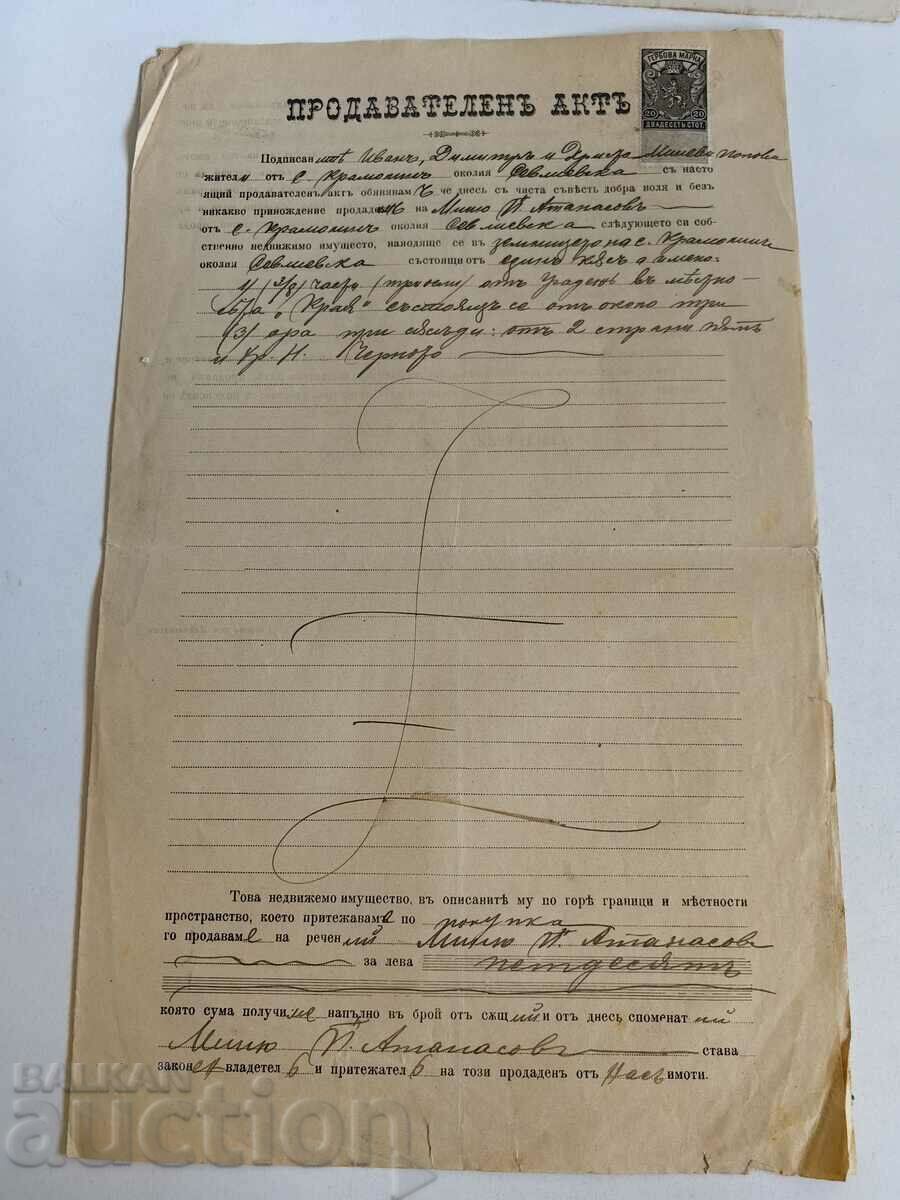 ГЕРБОВА МАРКА
20 20
ДВАДЕСЕТЬ СТОТ.
ПРОДАВАТЕЛЕНЪ АКТЪ
Подписан Иванъ, Димитръ и Христо Миневи Попова
жители от с. Крамолинъ околия Севлиевска съ насто
ящий продавателенъ актъ обявявам ъ че днесь съ чиста съвѣсть добра воля и безъ
никакво принождение продаде на Миню П. Атанасовъ
отъ с. Крамолинъ околия Севлиевска слѣдующето си соб-
ственно недвижимо имущество, находяще се въ землището на с. Крамолинъ
околия Севлиевска състояще отъ единъ кѫсъ а имено:
1/ (3/8) части (три осми) отъ Градежъ въ мѣстно
стьта „Края“ състоящъ се отъ около три
(3) ара при съсѣди: отъ 2 страни пѫть
и Кр. Н. Чернозо
Това недвижемо имущество, въ описанитѣ му по горѣ граници и мѣстности
пространство, което притежаваме по покупка
го продаваме на речен ий Миню П. Атанасовъ
за лева петдесять
която сума получи ме напълно въ брой отъ сѫщ ий и отъ днесь споменат ий
Миню П. Атанасовъ става
законен владетел ь и притежател ь на този продаденъ отъ насъ имоти.
BALKAN
auction